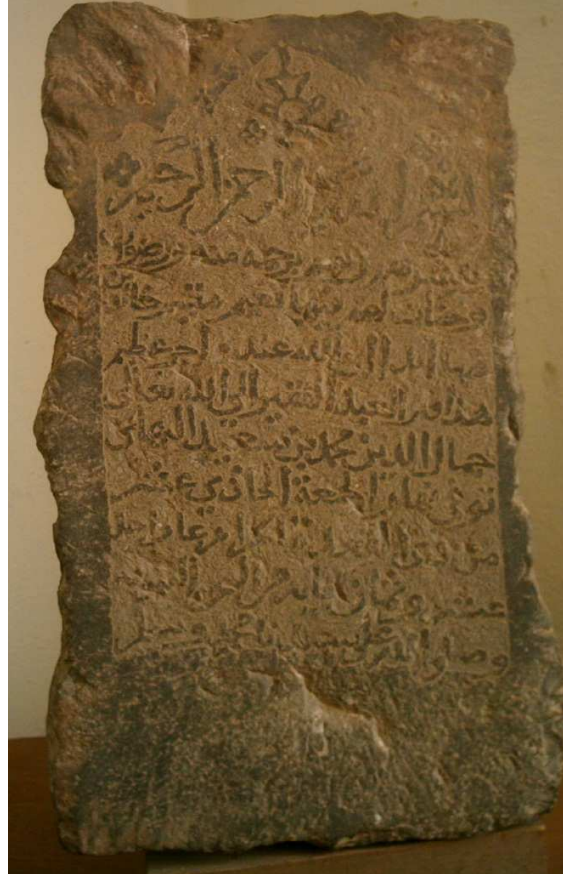 بسم الله الرحمن الرحيم
يبشرهم ربهم برحمة منه ورضوان
وجنات لهم فيها نعيم مقيم خالدين
فيها ابدا ان الله عنده اجر عظيم
هذا قبر العبد الفقير الى الله تعالى
جمال الدين محمد بن سعيد
توفي نهار الجمعة الحادي عشر
من ذي القعدة الحرام عام احد
عشر وثمان مايه من الهجرة النبوية
وصلى الله على سيدنا محمد وسلم